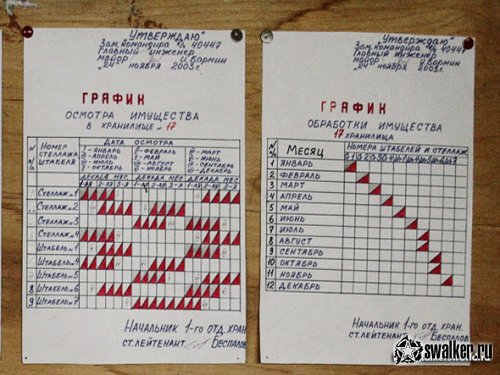 "Утверждаю"
Зам. командира в/ч 40447
Главный инженер
майор И. Бармин
"24" ноября 2003г.
ГРАФИК
ОСМОТРА ИМУЩЕСТВА
В ХРАНИЛИЩЕ № 17
N
п/п
НОМЕР
СТЕЛЛАЖА
ШТАБЕЛЯ
ДАТА ОСМОТРА
- ЯНВАРЬ - ФЕВРАЛЬ - МАРТ
- АПРЕЛЬ - МАЙ - ИЮНЬ
- ИЮЛЬ - АВГУСТ - СЕНТЯБРЬ
- ОКТЯБРЬ - НОЯБРЬ - ДЕКАБРЬ
ДЕКАДА МЕС ДЕКАДА МЕС ДЕКАДА МЕС
1 СТЕЛЛАЖ №1
СТЕЛЛАЖ №2
СТЕЛЛАЖ №3
СТЕЛЛАЖ №4
ШТАБЕЛЬ №1
ШТАБЕЛЬ №4
ШТАБЕЛЬ №5
8 ШТАБЕЛЬ №6
9 ШТАБЕЛЬ №7
Начальник 1-го отд. хран.
ст. лейтенант Беспалов
"Утверждаю"
Зам. командира в/ч 40447
Главный инженер
майор И. Бармин
"24" ноября 2003г.
ГРАФИК
ОБРАБОТКИ ИМУЩЕСТВА
17 ХРАНИЛИЩА
N
п/п
Месяц
НОМЕРА ШТАБЕЛЕЙ И СТЕЛЛАЖ.
1 ЯНВАРЬ
2 ФЕВРАЛЬ
3 МАРТ
4 АПРЕЛЬ
5 МАЙ
6 ИЮНЬ
7 ИЮЛЬ
8 АВГУСТ
9 СЕНТЯБРЬ
10 ОКТЯБРЬ
11 НОЯБРЬ
12 ДЕКАБРЬ
Начальник 1-го отд. хран.
ст. лейтенант Беспалов
swalker.ru